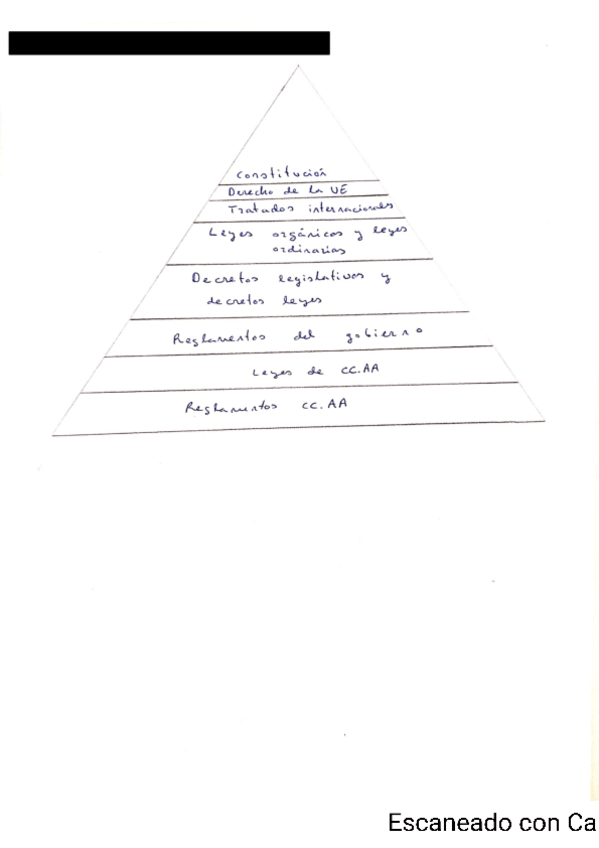 Constitución
Derecho de la UE
Tratados internacionales
Leyes orgánicas y leyes
ordinarias
Decretos legislativos y
decretos leyes
Reglamentos del gobierno
Leyes de CC.AA
Reglamentos CC.AA
Escaneado con Ca